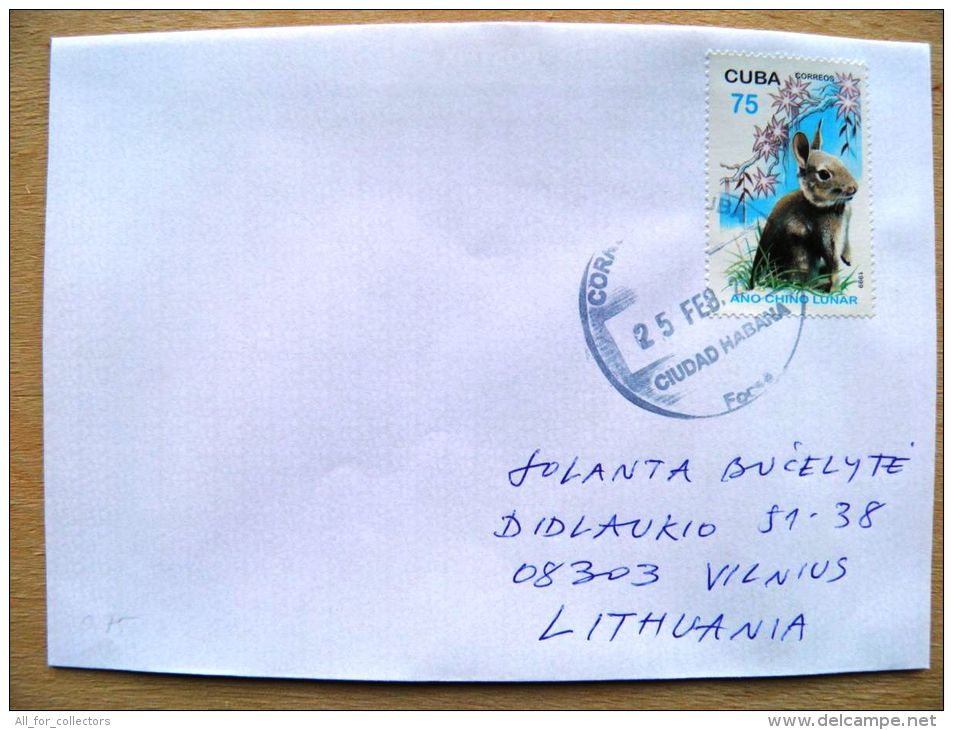 CUBA CORREOS
75
1999
AÑO CHINO LUNAR
25 FEB. 2
CIUDAD HABANA
JOLANTA BUČELYTĖ
DIDLAUKIO 51-38
08303 VILNIUS
LITHUANIA
All_for_collectors
www.delcampe.net